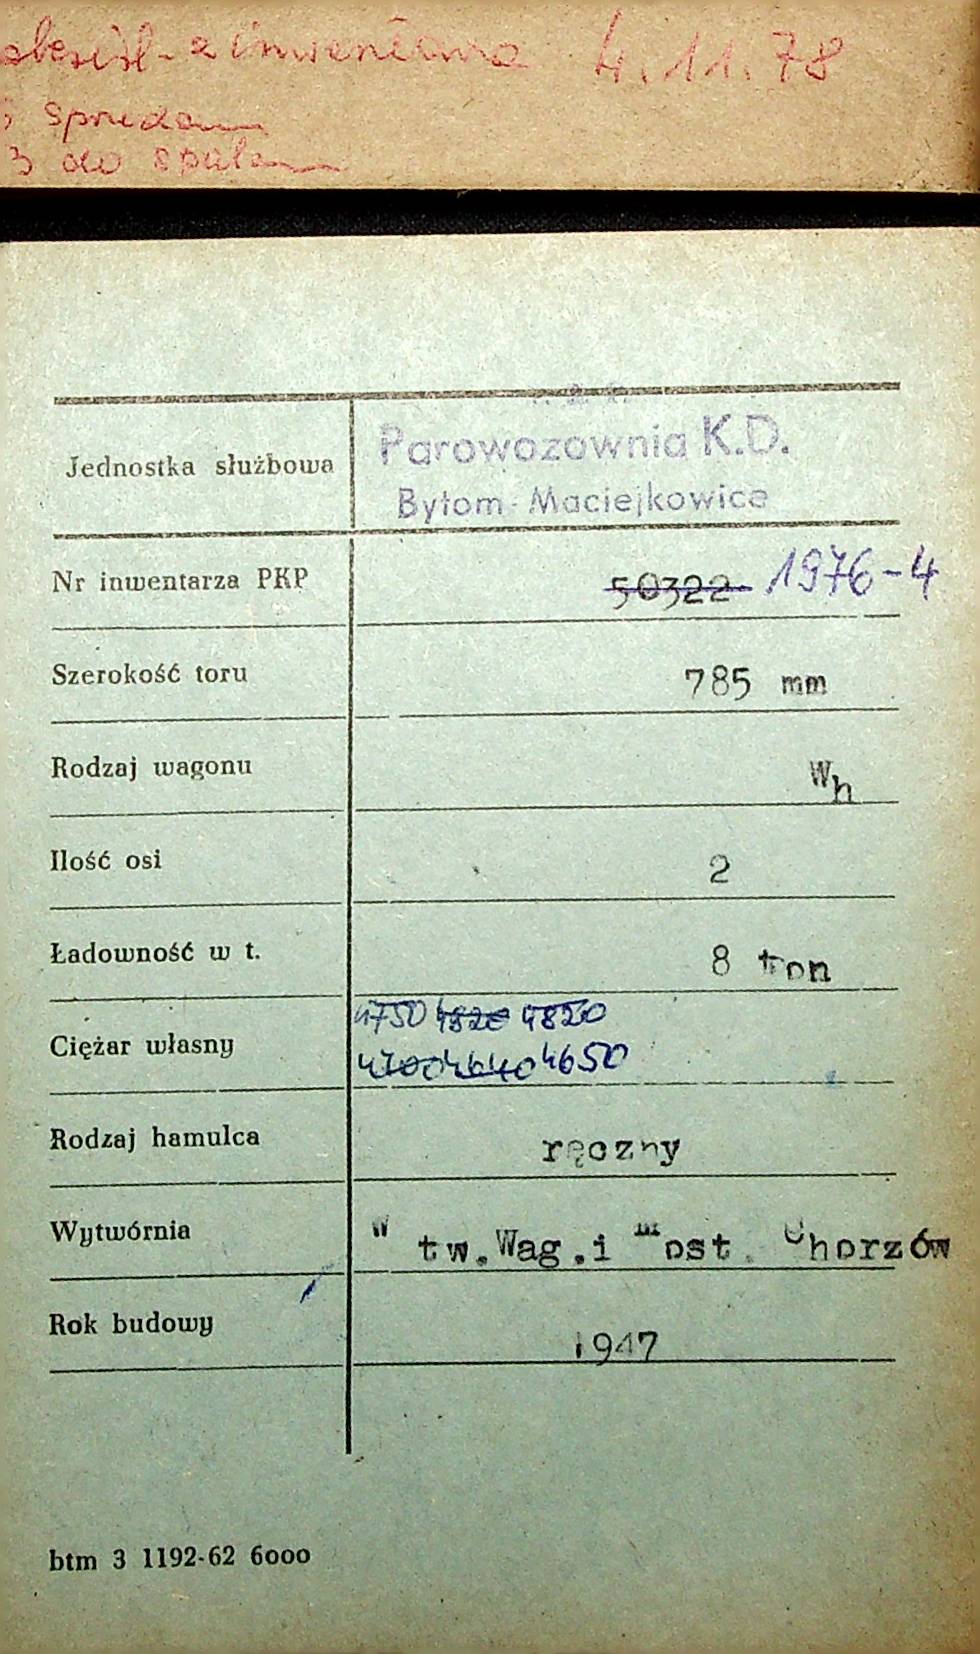 4.11.78
do
Jednostka służbowa Parowozownia K.D.
Bytom-Maciejkowice
Nr inwentarza PKP 50322 1976-4
Szerokość toru 785 mm
Rodzaj wagonu Wh
Ilość osi 2
Ładowność w t. 8 ton
4750 4820 4820
Ciężar własny 4700 4640 4650
Rodzaj hamulca ręczny
Wytwórnia W tw.Wag.i Most. Chorzów
Rok budowy 1947
btm 3 1192-62 6000